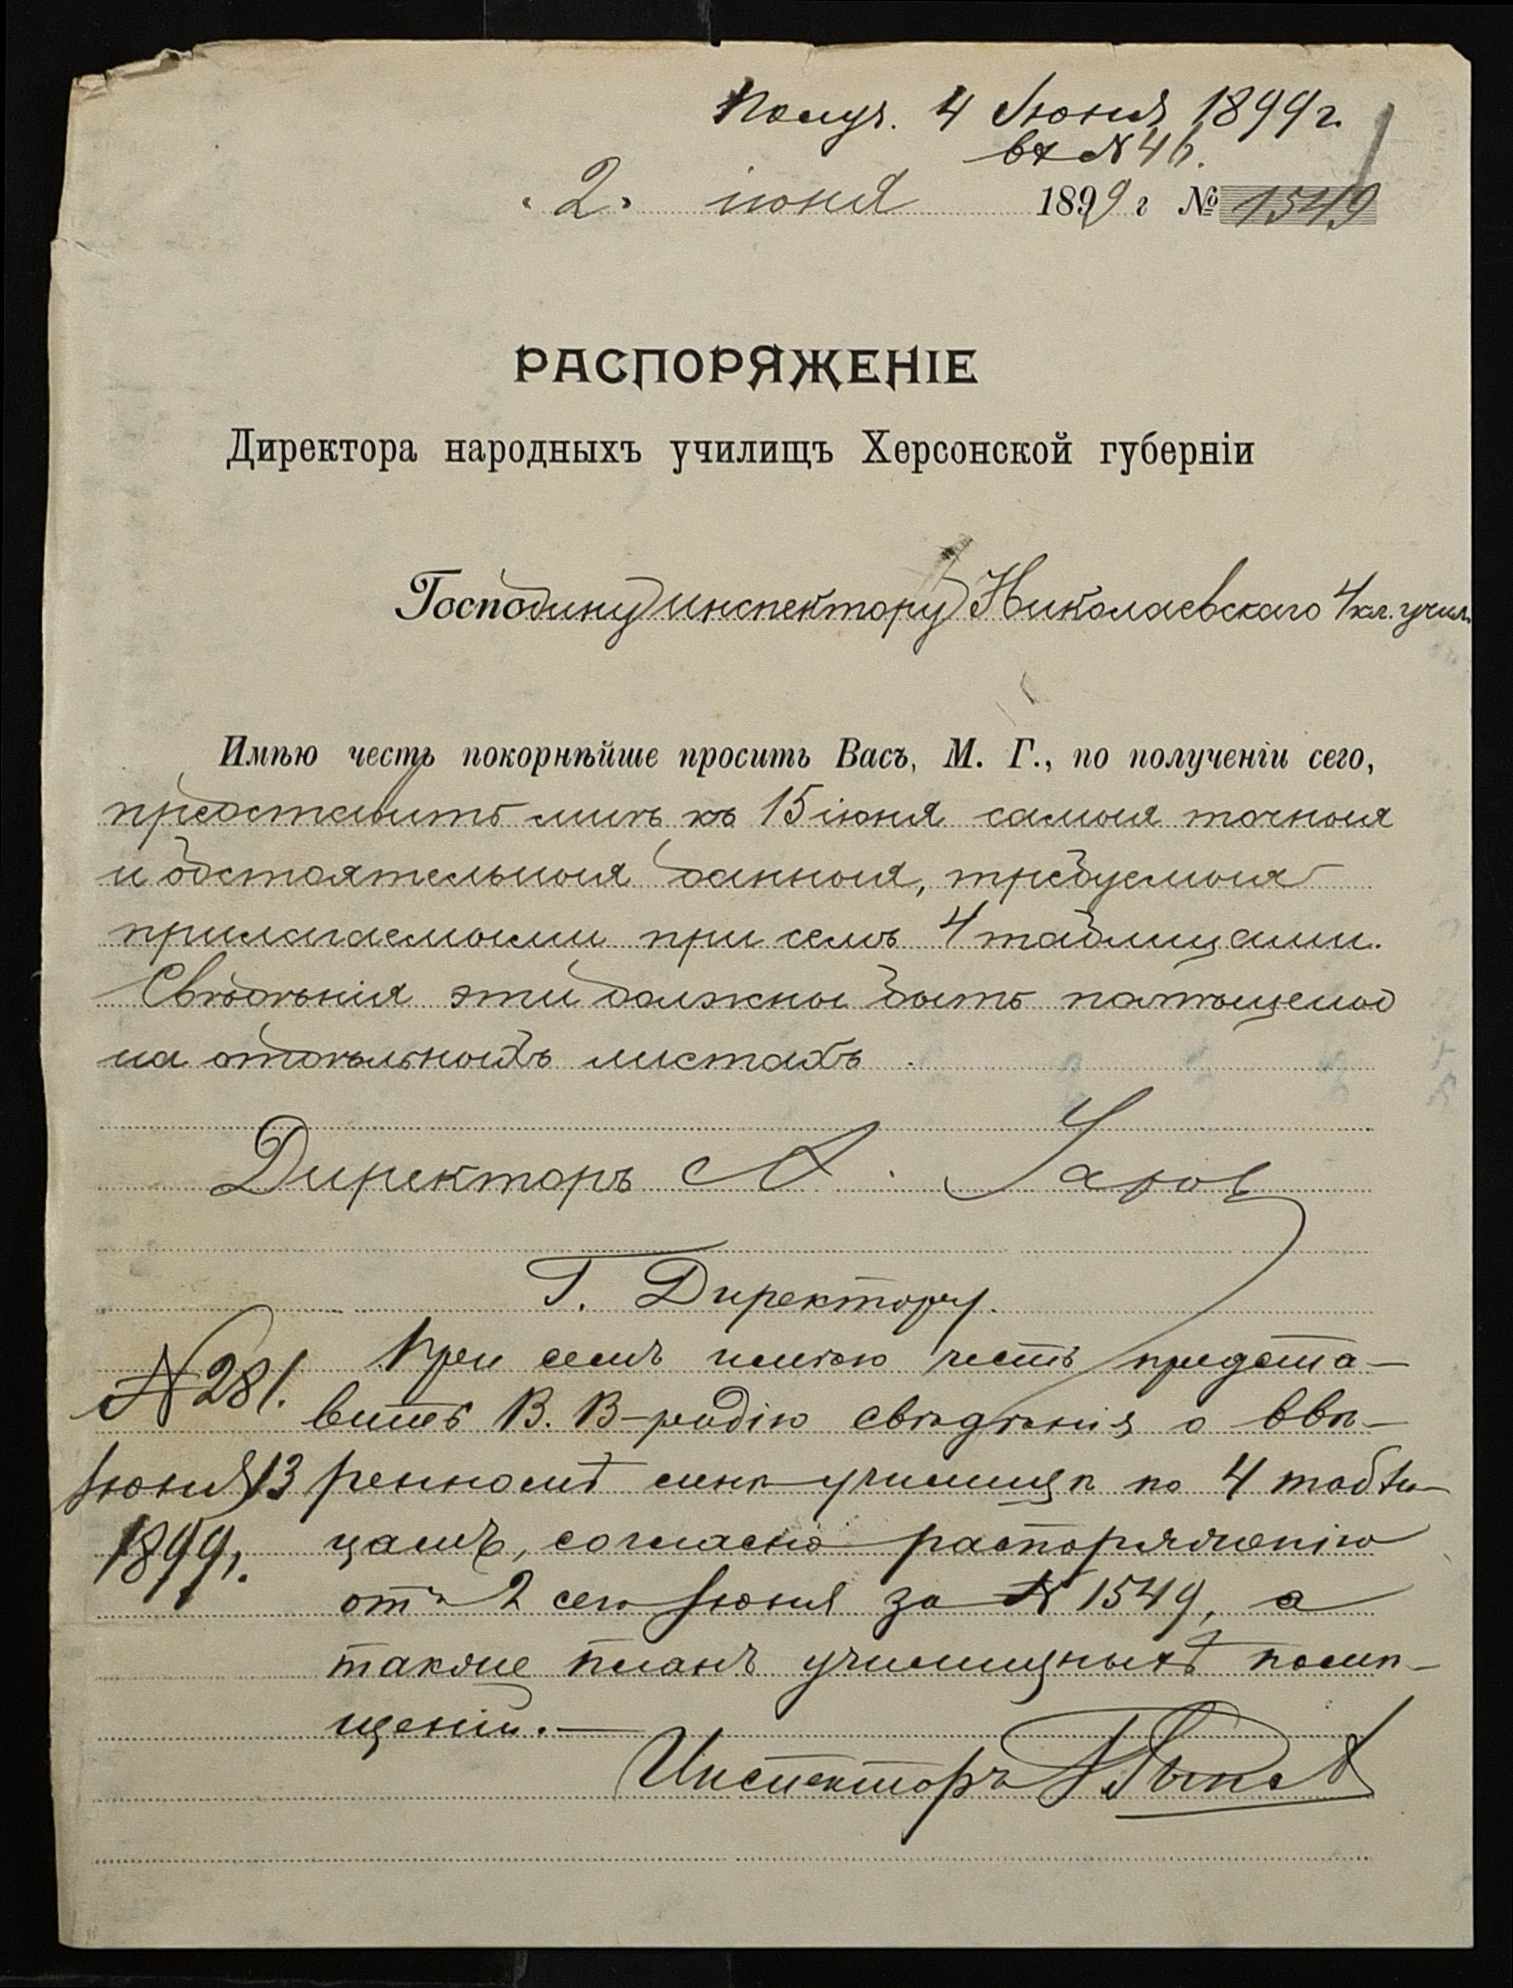 Получ. 4 Июня 1899 г.
вх № 46.
"2" іюня 1899 г № 1549
РАСПОРЯЖЕНІЕ
Директора народныхъ училищъ Херсонской губерніи
Господину инспектору Николаевскаго 4 кл. учил.
Имѣю честь покорнѣйше просить Васъ, М. Г., по полученіи сего,
представить мнѣ къ 15 іюня самыя точныя
и обстоятельныя данныя, требуемыя
прилагаемыми при семъ 4 таблицами.
Свѣдѣнія эти должны быть помѣщены
на отдѣльныхъ листахъ.
Директоръ А.
Г. Директору.
При семъ имѣю честь предста-
№ 281. вить В. В-родію свѣдѣнія о ввѣ-
Июня 13 ренномъ мнѣ училищѣ по 4 табли-
1899. цамъ, согласно распоряженію
отъ 2 сего Июня за № 1549, а
также планъ училищныхъ помѣ-
щеній.—
Инспекторъ